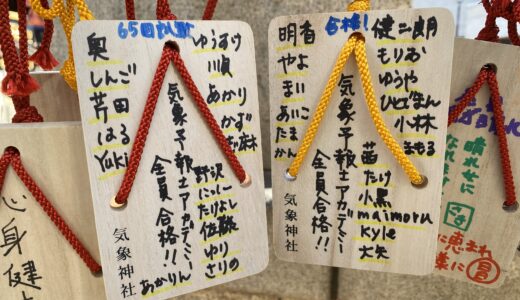 心身健
65回对験
奥
しんご
芹田
はる
Yuki
気象予報士アカデミー
全員合格!!
ゆうすけ
順
あかり
かず
野沢
にっしー
たけよし
佐藤
ゆり
さりの
あかりん
気象神社
合格!
明香
やよ
まい
あに
たま
かん
気象予報士アカデミー
全員合格!!
健二朗
もりお
ゆうや
ひでまん
小林
まもる
茜
たけ
小黒
maimoru
kyle
大矢
気象神社
晴れ女に